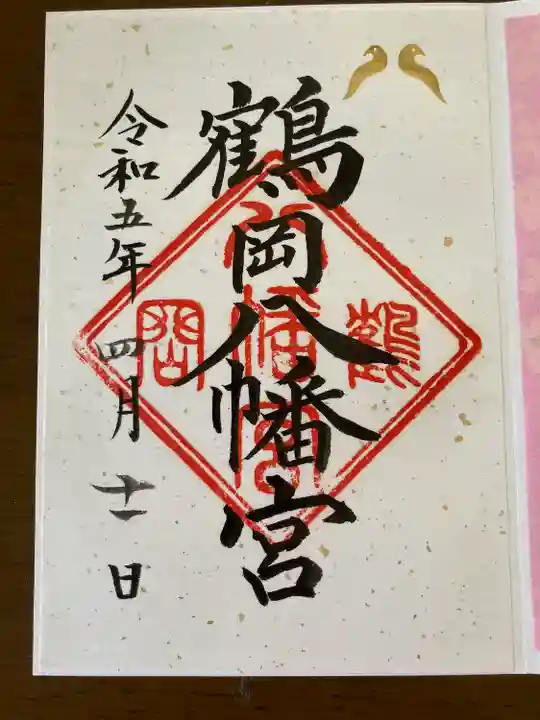 鶴岡八幡宮
令和五年 四月十一日
鶴
八幡宮
岡